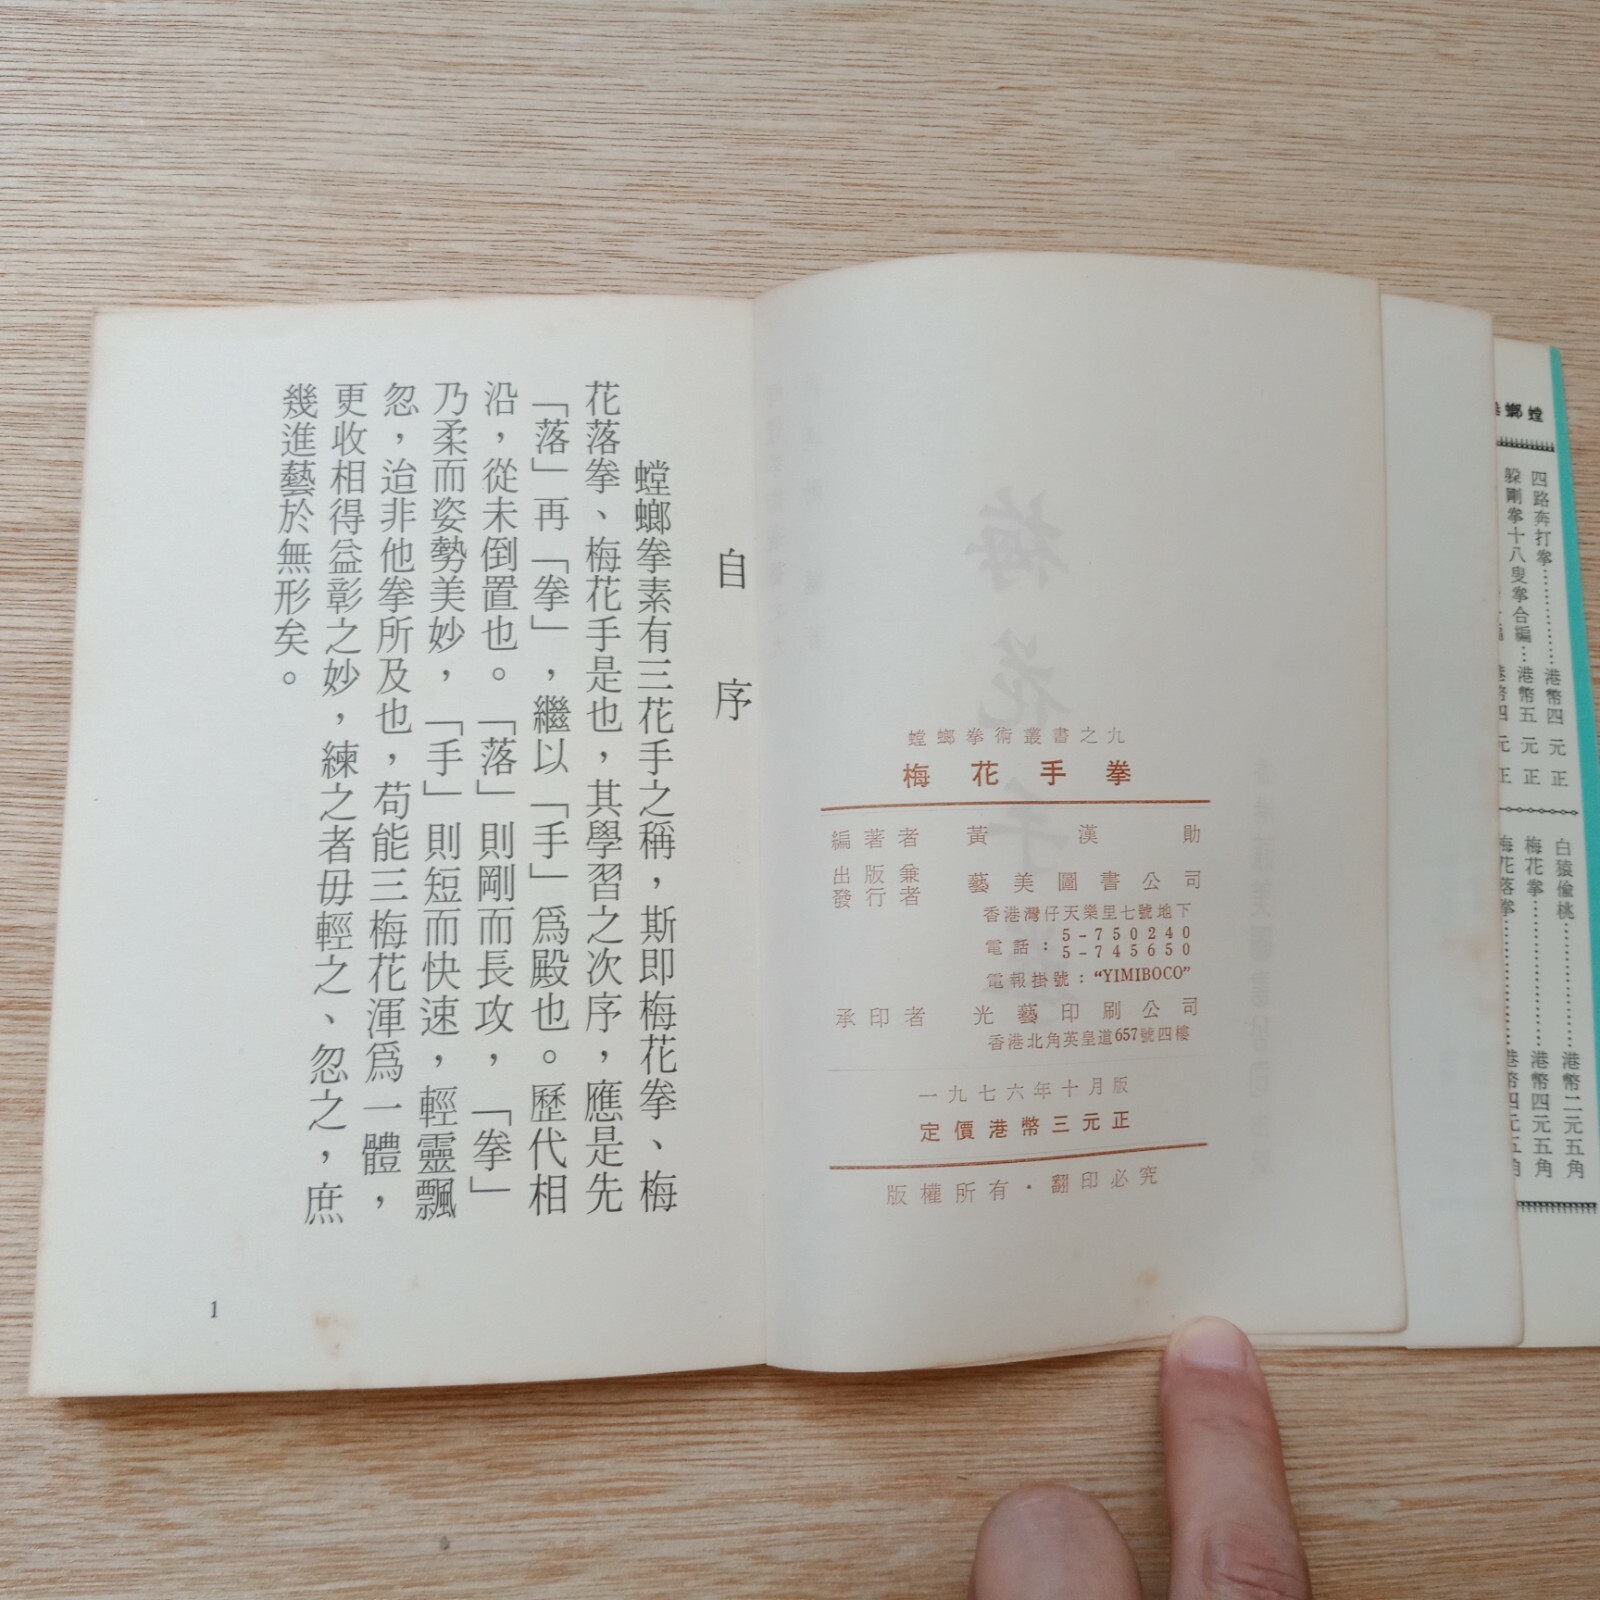 自序
螳螂拳素有三花手之稱，斯即梅花拳、梅
花落拳、梅花手是也，其學習之次序，應是先
「落」再「拳」，繼以「手」爲殿也。歷代相
沿，從未倒置也。「落」則剛而長攻，「拳」
乃柔而姿勢美妙，「手」則短而快速，輕靈飄
忽，迨非他拳所及也，苟能三梅花渾爲一體，
更收相得益彰之妙，練之者毋輕之、忽之，庶
幾進藝於無形矣。
1
螳螂拳術叢書之九
梅花手拳
編著者 黃漢勛
出版兼發行者 藝美圖書公司
香港灣仔天樂里七號地下
電話：5-750240
5-745650
電報掛號：“YIMIBOCO”
承印者 光藝印刷公司
香港北角英皇道657號四樓
一九七六年十月版
定價港幣三元正
版權所有·翻印必究
螳螂
四路奔打拳……港幣四元正
躲剛拳十八叟拳合編…港幣五元正
白猿偷桃……港幣二元五角
梅花拳……港幣四元五角
梅花落拳……港幣四元五角